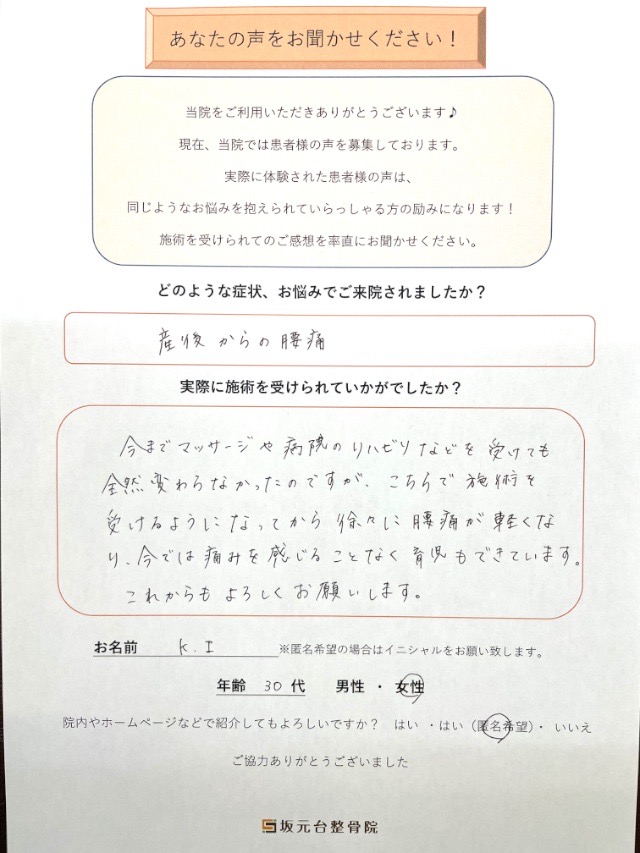 あなたの声をお聞かせください！
当院をご利用いただきありがとうございます♪
現在、当院では患者様の声を募集しております。
実際に体験された患者様の声は、
同じようなお悩みを抱えられていらっしゃる方の励みになります！
施術を受けられてのご感想を率直にお聞かせください。
どのような症状、お悩みでご来院されましたか？
産後からの腰痛
実際に施術を受けられていかがでしたか？
今までマッサージや病院のリハビリなどを受けても
全然変わらなかったのですが、こちらで施術を
受けるようになってから徐々に腰痛が軽くな
り、今では痛みを感じることなく育児もできています。
これからもよろしくお願いします。
お名前 K.I ※匿名希望の場合はイニシャルをお願い致します。
年齢 30 代 男性 ・ 女性
院内やホームページなどで紹介してもよろしいですか？ はい ・はい（匿名希望）・ いいえ
ご協力ありがとうございました
坂元台整骨院